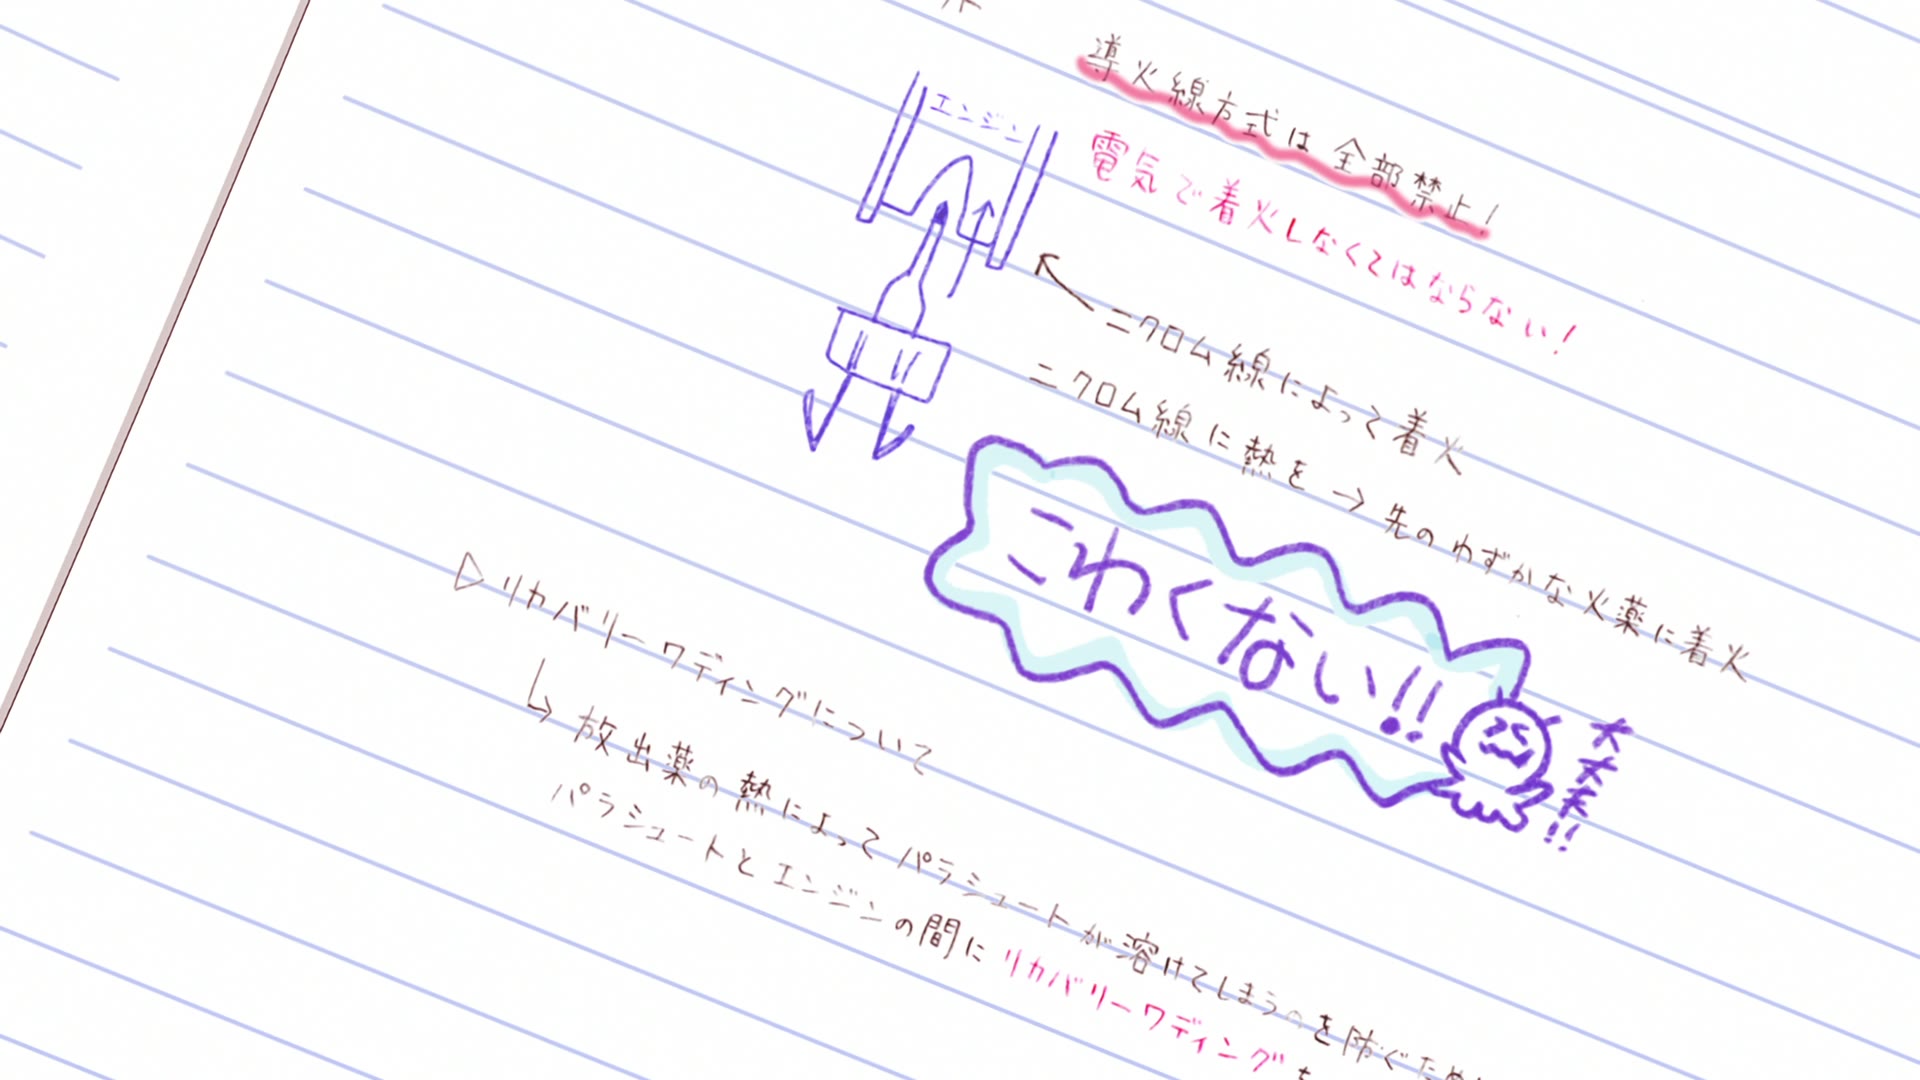 導火線方式は全部禁止!
エンジン
電気で着火しなくてはならない!
ニクロム線によって着火
ニクロム線に熱を→先のわずかな火薬に着火
こわくない!!
大丈夫!!
▷リカバリーワディングについて
↳放出薬の熱によってパラシュートが溶けてしまうのを防ぐため
パラシュートとエンジンの間にリカバリーワディングを